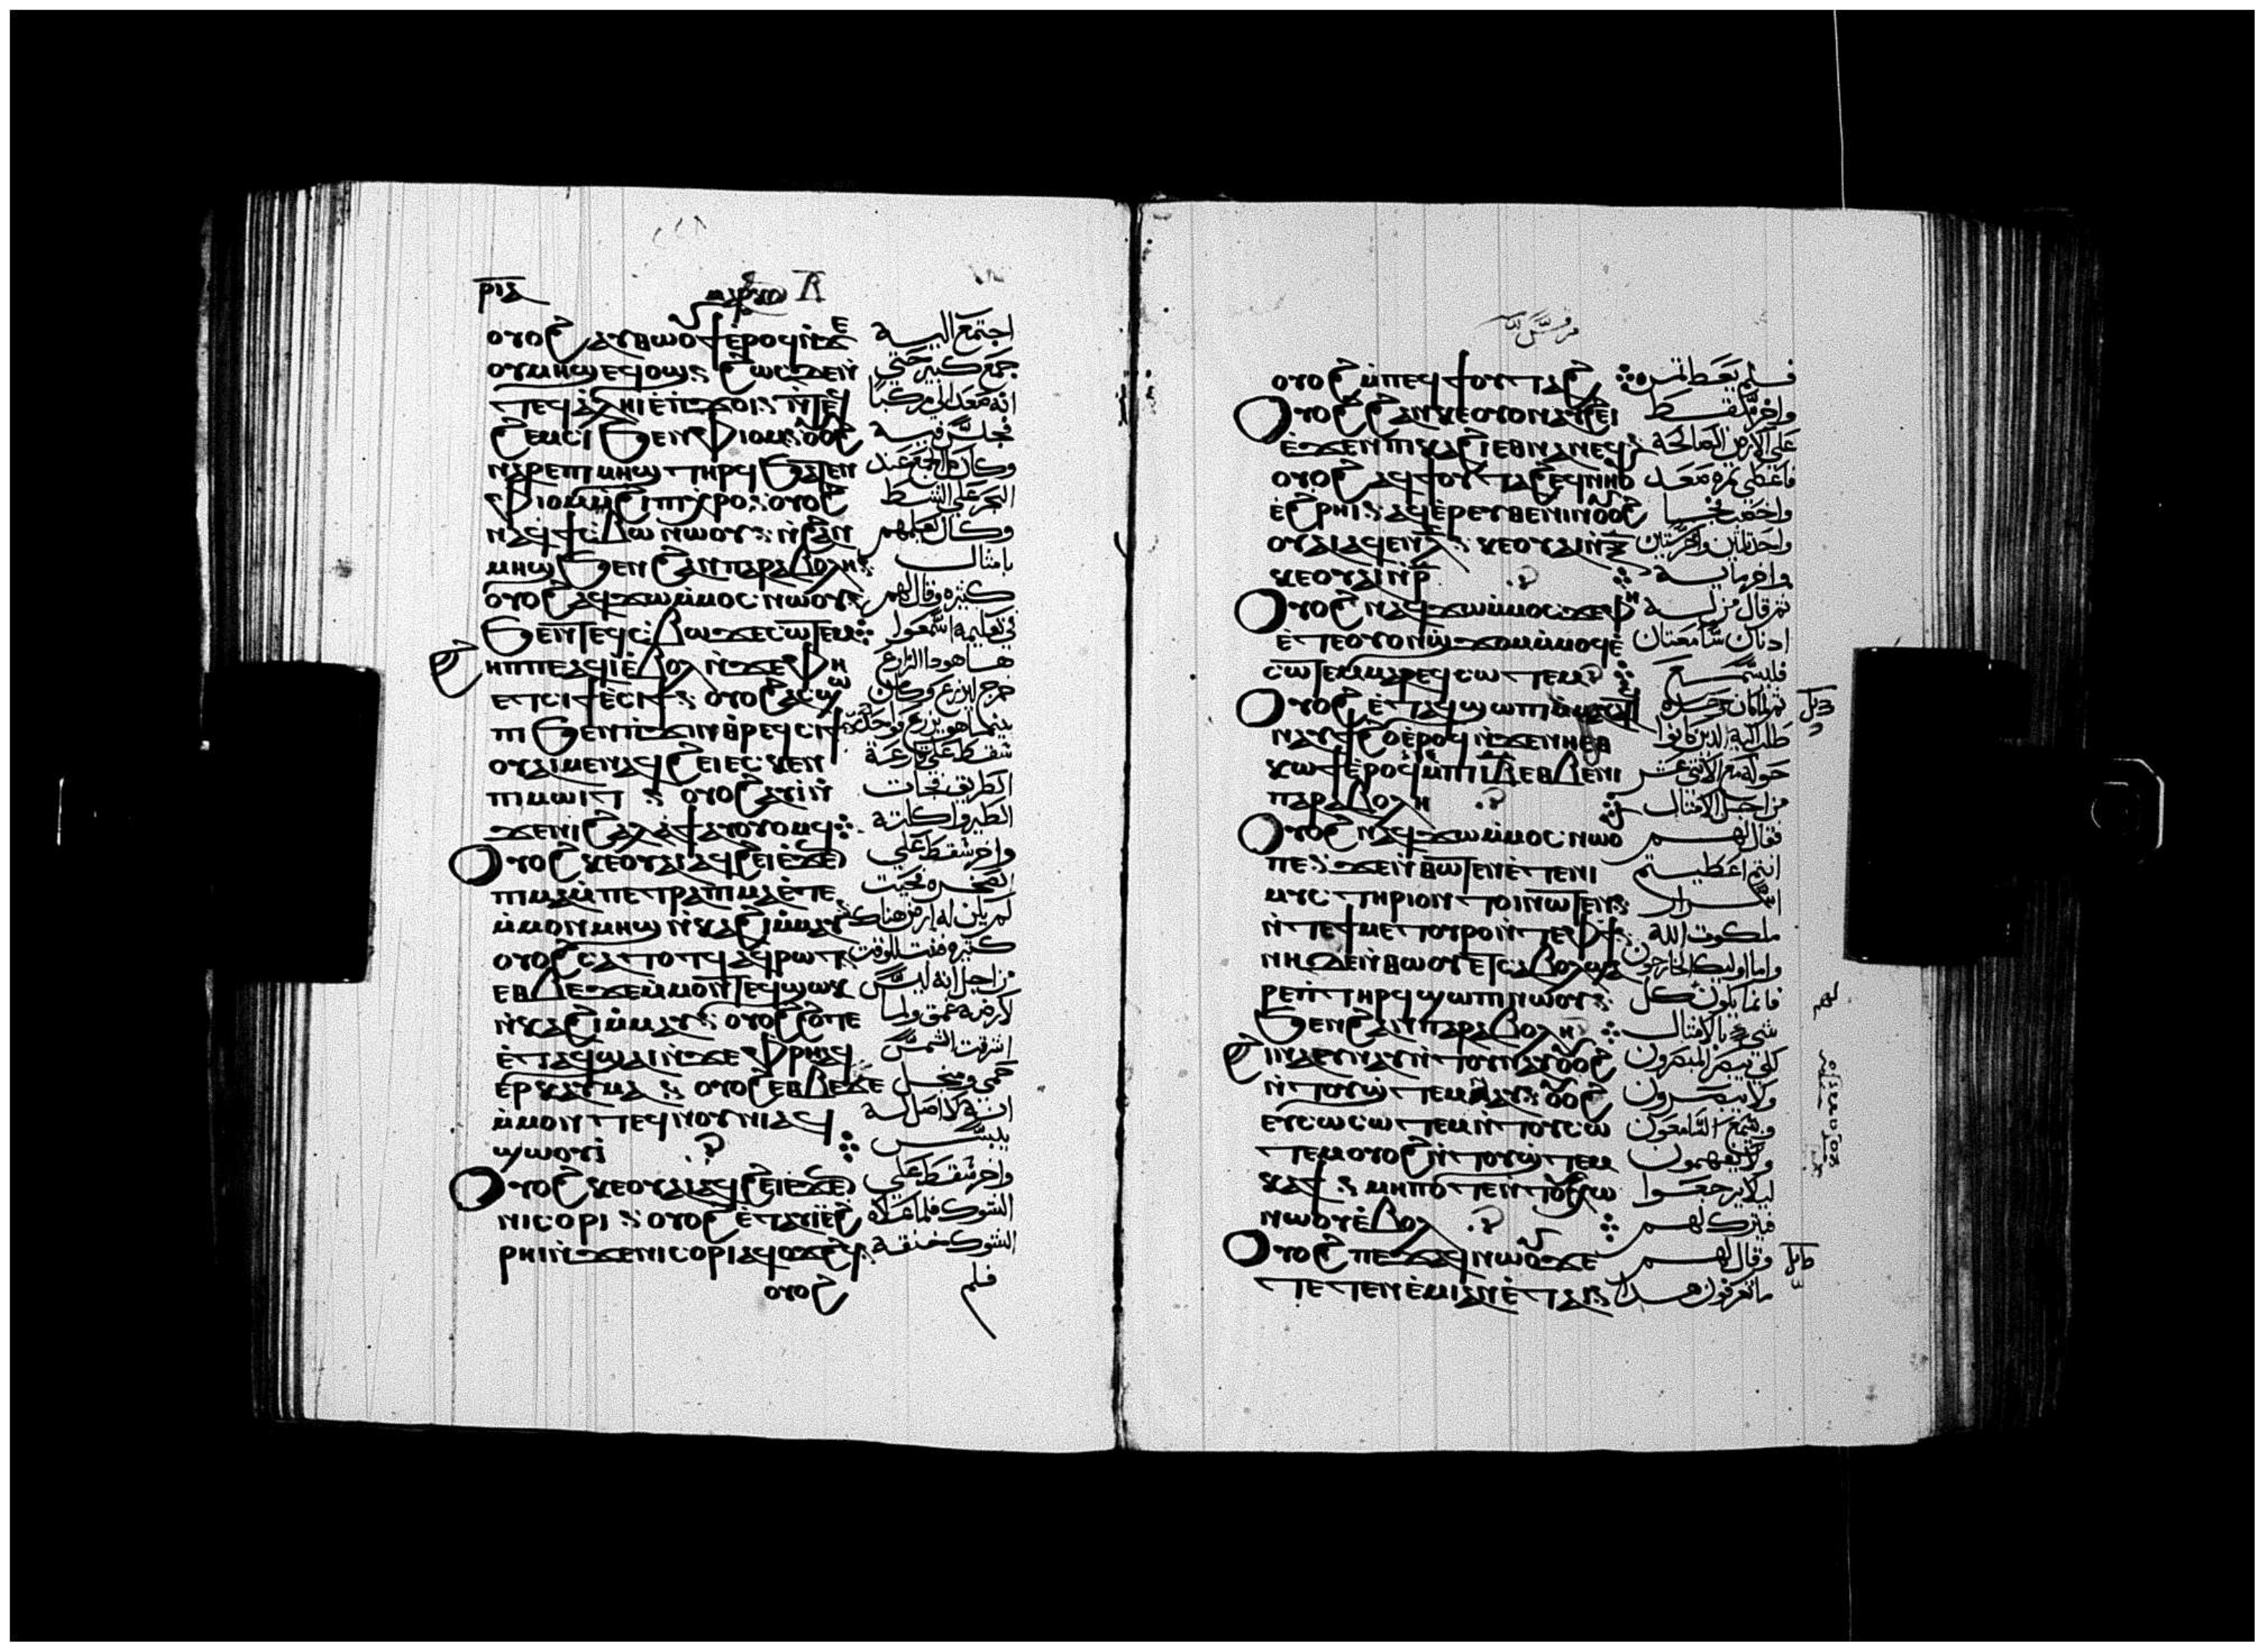 ⲣⲓⲇ ⲙⲁⲣⲕⲟⲥ
ⲟⲩⲟϩ ⲁⲩⲑⲱⲟⲩϯ ⲉⲣⲟϥ ⲛ̀ϫⲉ
ⲟⲩⲙⲏϣ ⲉϥⲟϣ ⳾ ϩⲱⲥⲇⲉⲛ̀
ⲧⲉϥⲁⲗⲏⲓ ⲉ̀ⲡϫⲟⲓ ⳾ ⲛ̀ⲧⲉϥ
ϩⲉⲙⲥⲓ ϧⲉⲛ ⲫⲓⲟⲙ ⳾ ⲟⲩⲟϩ
ⲛⲁⲣⲉ ⲡⲓⲙⲏϣ ⲧⲏⲣϥ ϧⲁⲧⲉⲛ
ⲫⲓⲟⲙ ϩⲓ ⲡⲓⲭⲣⲟ ⳾ ⲟⲩⲟϩ
ⲛⲁϥϯⲥⲃⲱ ⲛⲱⲟⲩ ⳾ ⲛ̀ϩⲁⲛ
ⲙⲏϣ ϧⲉⲛ ϩⲁⲛⲡⲁⲣⲁⲃⲟⲗⲏ ⳾
ⲟⲩⲟϩ ⲛⲁϥϫⲱ ⲙ̀ⲙⲟⲥ ⲛⲱⲟⲩ ⳾
ϧⲉⲛ ⲧⲉϥⲥⲃⲱ ϫⲉ ⲥⲱⲧⲉⲙ
ϩⲏⲡⲡⲉ ⲁϥⲓ̀ ⲉ̀ⲃⲟⲗ ⲛ̀ϫⲉ ⲫⲏ
ⲉⲧⲥⲓϯ ⲉ̀ⲥⲓϯ ⳾ ⲟⲩⲟϩ ⲁⲥϣⲱ
ⲡⲓ ϧⲉⲛ ⲡϫⲓⲛⲑⲣⲉϥⲥⲓϯ
ⲟⲩⲁⲓ ⲙⲉⲛ ⲁϥϩⲉⲓ ⲉⲥⲕⲉⲛ
ⲡⲓⲙⲱⲓⲧ ⳾ ⲟⲩⲟϩ ⲁⲩⲓ̀ ⲛ̀
ϫⲉ ⲛⲓϩⲁⲗⲁϯ ⲁⲩⲟⲩⲟⲙϥ
ⲟⲩⲟϩ ⲕⲉⲟⲩⲁⲓ ⲁϥϩⲉⲓ ⲉ̀ϫⲉⲛ
ⲡⲓⲙⲁ ⲙ̀ⲡⲉⲧⲣⲁ ⲡⲓⲙⲁ ⲉ̀ⲧⲉ
ⲙ̀ⲙⲟⲛ ⲙⲏϣ ⲛ̀ⲕⲁϩⲓ ⲙ̀ⲙⲁⲩ
ⲟⲩⲟϩ ⲥⲁⲧⲟⲧϥ ⲁϥⲣⲱⲧ
ⲉⲑⲃⲉϫⲉ ⲙ̀ⲙⲟⲛⲧⲉϥ ϣⲱⲕ
ⲛ̀ⲕⲁϩⲓ ⲙ̀ⲙⲁⲩ ⳾ ⲟⲩⲟϩ ϩⲟⲧⲉ
ⲉ̀ⲧⲁϥϣⲁⲓ ⲛ̀ϫⲉ ⲫⲣⲏ ⲁϥ
ⲉⲣⲕⲁⲩⲙⲁ ⳾ ⲟⲩⲟϩ ⲉⲑⲃⲉϫⲉ
ⲙ̀ⲙⲟⲛⲧⲉϥ ⲛⲟⲩⲛⲓ ⲁϥ
ϣⲱⲟⲩⲓ̀
ⲟⲩⲟϩ ⲕⲉⲟⲩⲁⲓ ⲁϥϩⲉⲓ ⲉ̀ϫⲉⲛ
ⲛⲓⲥⲟⲩⲣⲓ ⳾ ⲟⲩⲟϩ ⲉ̀ⲧⲁⲩⲓ̀ ⲉ̀ϩ
ⲣⲏⲓ ⲛ̀ϫⲉ ⲛⲓⲥⲟⲩⲣⲓ ⲁⲩⲟϫϩϥ
ⲟⲩⲟϩ
اجتمع اليه
جمع كبير حتي
انه صعد الي مركبا
فجلس فيه
وكان كل الجمع عند
البحر علي الشط
وكان يعلمهم
بامثال
كثيره وقال لهم
في تعليمه اسمعوا
ها هودا الزارع
خرج ليزرع وكان
بينما هو يزرع واحد
سقط علي قارعة
الطريق فجات
الطير واكلته
واخر سقط علي
الصخره حيت
لم يكن له ارض هناك
كثيره فنبت للوقت
من اجل انه ليس
لارضه عمق ولما
اشرقت الشمس
حمي
انه لا اصل له
يبس
واخر سقط علي
الشوك فلما علاه
الشوك خنقه
فلم
مرقس
ⲟⲩⲟϩ ⲙ̀ⲡⲉϥϯⲟⲩⲧⲁϩ
ⲟⲩⲟϩ ϩⲁⲛⲕⲉⲟⲩⲟⲛ ⲁⲩϩⲉⲓ
ⲉ̀ϫⲉⲛ ⲡⲓⲕⲁϩⲓ ⲉⲑⲛⲁⲛⲉϥ
ⲟⲩⲟϩ ⲁϥϯⲟⲩⲧⲁϩ ⲉϥⲛⲏⲟⲩ
ⲉ̀ϩⲣⲏⲓ ⳾ ⲁϥⲉⲣⲉⲩⲑⲉⲛⲓⲛ ⲟⲩⲟϩ
ⲟⲩⲁⲓ ⲁϥⲉⲛ ⲗ̅ ⳾ ⲕⲉⲟⲩⲁⲓ ⲛ̀ⲝ̅
ⲕⲉⲟⲩⲁⲓ ⲛ̀ⲣ̅
ⲟⲩⲟϩ ⲛⲁϥϫⲱ ⲙ̀ⲙⲟⲥ ϫⲉ ⲫⲏ
ⲉⲧⲉⲟⲩⲟⲛ ⲙ̀ⲙⲟϥ ⲉ̀
ⲥⲱⲧⲉⲙ ⲙⲁⲣⲉϥⲥⲱⲧⲉⲙ
ⲟⲩⲟϩ ⲉ̀ⲧⲁϥϣⲱⲡⲓ
ⲛⲁⲩϯϩⲟ ⲉ̀ⲣⲟϥ ⲛ̀ϫⲉ ⲛⲏ ⲉⲑ
ⲕⲱϯ ⲉ̀ⲣⲟϥ ⲙ̀ⲡⲓⲓ̅ⲃ̅ ⲉⲑⲃⲉ ⲛⲓ
ⲡⲁⲣⲁⲃⲟⲗⲏ
ⲟⲩⲟϩ ⲛⲁϥϫⲱ ⲙ̀ⲙⲟⲥ ⲛⲱⲟⲩ
ⲡⲉ ⳾ ϫⲉ ⲛ̀ⲑⲱⲧⲉⲛ ⲉ̀ⲧⲉ ⲛⲓ
ⲙⲩⲥⲧⲏⲣⲓⲟⲛ ⲧⲟⲓ ⲛⲱⲧⲉⲛ ⳾
ⲛ̀ⲧⲉ ϯⲙⲉⲧⲟⲩⲣⲟ ⲛ̀ⲧⲉ ⲫϯ
ⲛⲏ ⲇⲉ ⲛ̀ⲑⲱⲟⲩ ⲉⲧⲥⲁⲃⲟⲗ ϣⲁ
ⲣⲉ ⲡⲧⲏⲣϥ ϣⲱⲡⲓ ⲛⲱⲟⲩ ⳾
ϧⲉⲛ ϩⲁⲛⲡⲁⲣⲁⲃⲟⲗⲏ
ϩⲓⲛⲁ ⲉⲩⲛⲁⲩ ⲛ̀ⲧⲟⲩⲛⲁⲩ ⲟⲩⲟϩ
ⲛ̀ⲧⲟⲩϣⲧⲉⲙⲛⲁⲩ ⳾ ⲟⲩⲟϩ
ⲉⲩⲥⲱⲧⲉⲙ ⲛ̀ⲧⲟⲩⲥⲱ
ⲧⲉⲙ ⲟⲩⲟϩ ⲛ̀ⲧⲟⲩϣⲧⲉⲙ
ⲕⲁϯ ⳾ ⲙⲏⲡⲟⲧⲉ ⲛ̀ⲧⲟⲩⲕⲟⲧⲟⲩ
ⲛⲱⲟⲩ ⲉ̀ⲃⲟⲗ
ⲟⲩⲟϩ ⲡⲉϫⲁϥ ⲛⲱⲟⲩ ϫⲉ
ⲧⲉⲧⲉⲛⲉ̀ⲙⲓ ⲁⲛ ⲉ̀ⲧⲁⲓ
فلم يعط ثمره
واخر سقط
علي الارض الصالحة
فاعطي ثمره صعد
واخصب فجا
واحد ثلثين واخر ستين
واخر مايه
ثم قال من له
ادنان سامعتان
فليسمع
ثم لما كان وحده
طلب اليه الذين كانوا
حوله مع الاثني عشر
من اجل الامثال
فقال لهم
انتم اعطيتم
اسرار
ملكوت الله
واما اوليك الخارجون
فانما يكون كل
شي بالامثال
لكي يبصر المبصرون
ولا يبصرون
ويسمع السامعون
ولا يفهمون
ليلا يرجعوا
فيترك لهم
وقال لهم
ما تعرفون هدا